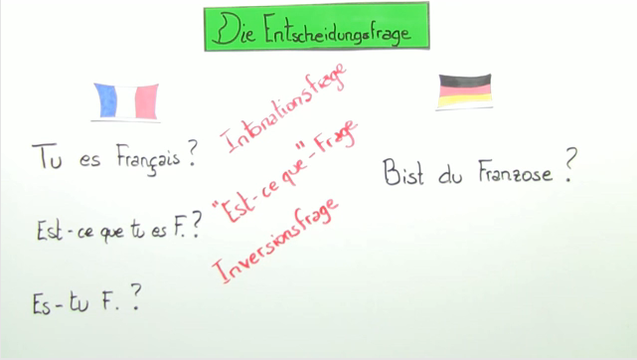 Die Entscheidungsfrage
Tu es Français?
Intonationsfrage
Est-ce que tu es F.?
"Est-ce que"-Frage
Es-tu F.?
Inversionsfrage
Bist du Franzose?